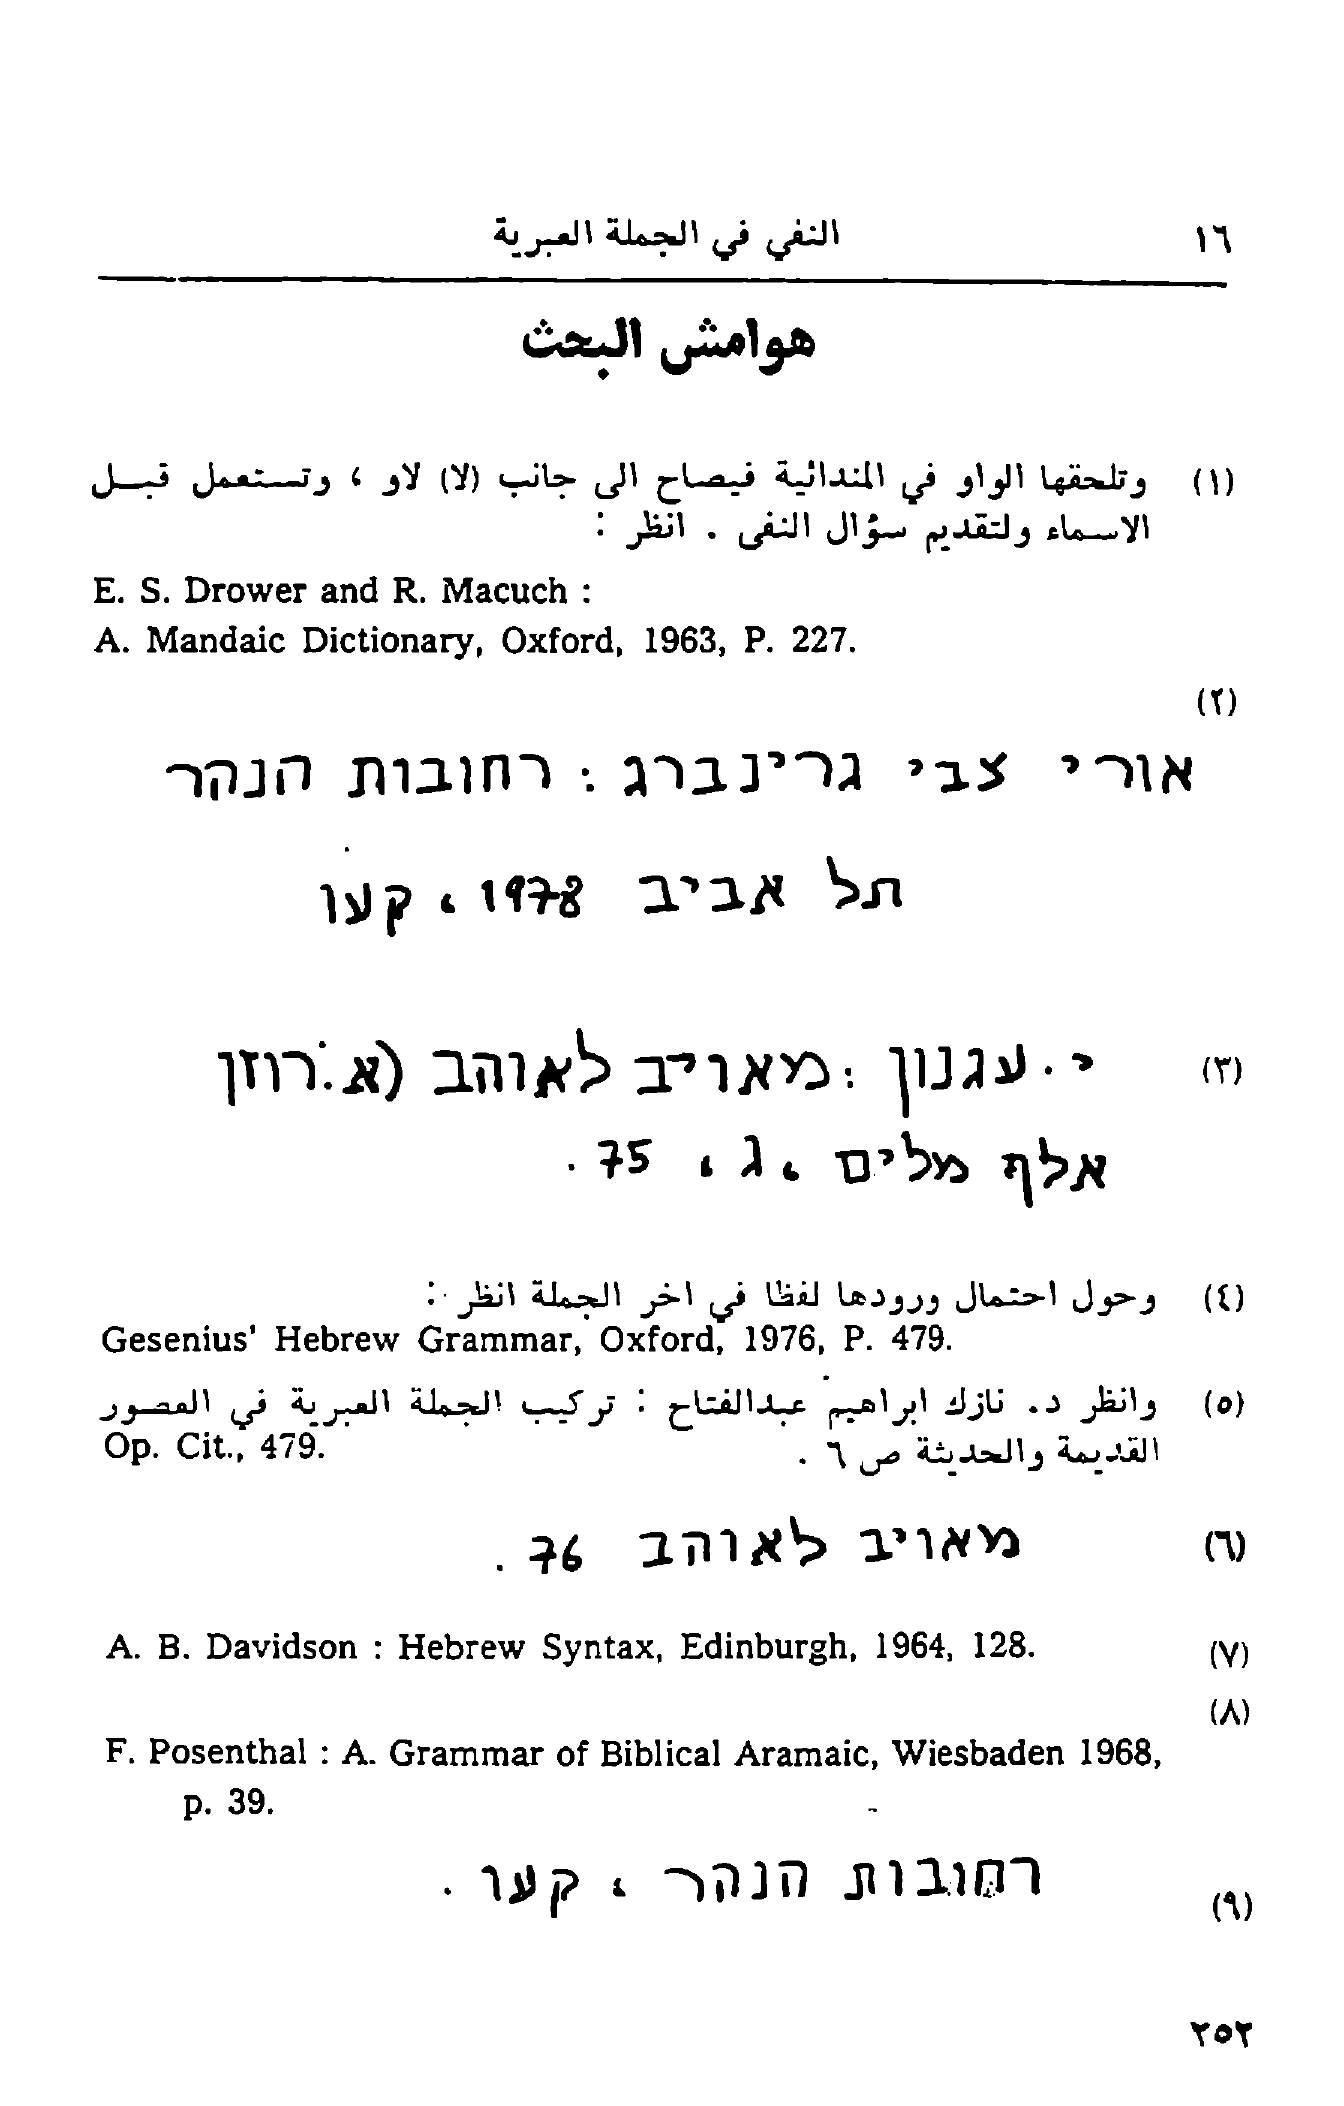 ١٦ النفي في الجملة العبرية
هوامش البحث
(١) وتلحقها الواو في المندائية فيصاح الى جانب (لا) لاو ، وتستعمل قبل
الاسماء ولتقديم سؤال النفي . انظر :
E. S. Drower and R. Macuch :
A. Mandaic Dictionary, Oxford, 1963, P. 227.
(٢)
אורי צבי גרינברג : רחובות הנהר
תל אביב 1978 ، קעו
(٣) י. עגנון : מאויב לאוהב (א. רוזן
אלף מלים ، ג ، 75 .
(٤) وحول احتمال ورودها لفظا في اخر الجملة انظر :
Gesenius' Hebrew Grammar, Oxford, 1976, P. 479.
(٥) وانظر د. نازك ابراهيم عبدالفتاح : تركيب الجملة العبرية في العصور
القديمة والحديثة ص ٦ . Op. Cit., 479.
(٦) מאויב לאוהב 76 .
(٧) A. B. Davidson : Hebrew Syntax, Edinburgh, 1964, 128.
(٨)
F. Posenthal : A. Grammar of Biblical Aramaic, Wiesbaden 1968,
p. 39.
(٩) רחובות הנהר ، קעו .
٢٥٢